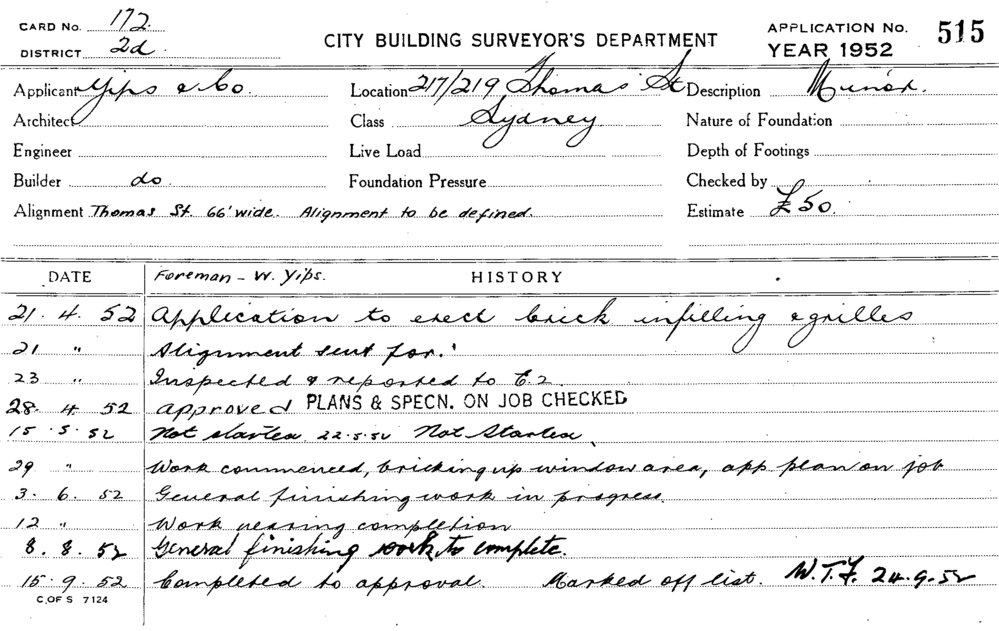 CARD No. 172.
DISTRICT 2d.
CITY BUILDING SURVEYOR'S DEPARTMENT
APPLICATION No. 515
YEAR 1952
Applicant Yips & Co. Location 217/219 Thomas St Description Minor.
Architect Class Sydney Nature of Foundation
Engineer Live Load Depth of Footings
Builder do. Foundation Pressure Checked by
Alignment Thomas St. 66' wide. Alignment to be defined. Estimate £50.
DATE Foreman - W. Yips. HISTORY
21. 4. 52 Application to erect brick infilling & grilles
21 " Alignment sent for.
23 " Inspected & reported to E.2.
28. 4. 52 approved PLANS & SPECN. ON JOB CHECKED
15. 5. 52 Not started 22.5.52 Not Started.
29 " Work commenced, bricking up window area, app plan on job
3. 6. 52 General finishing work in progress.
12 " Work nearing completion
8. 8. 52 General finishing work to complete.
15. 9. 52 Completed to approval. Marked off list. W.T.F. 24.9.52
C OF S 7124